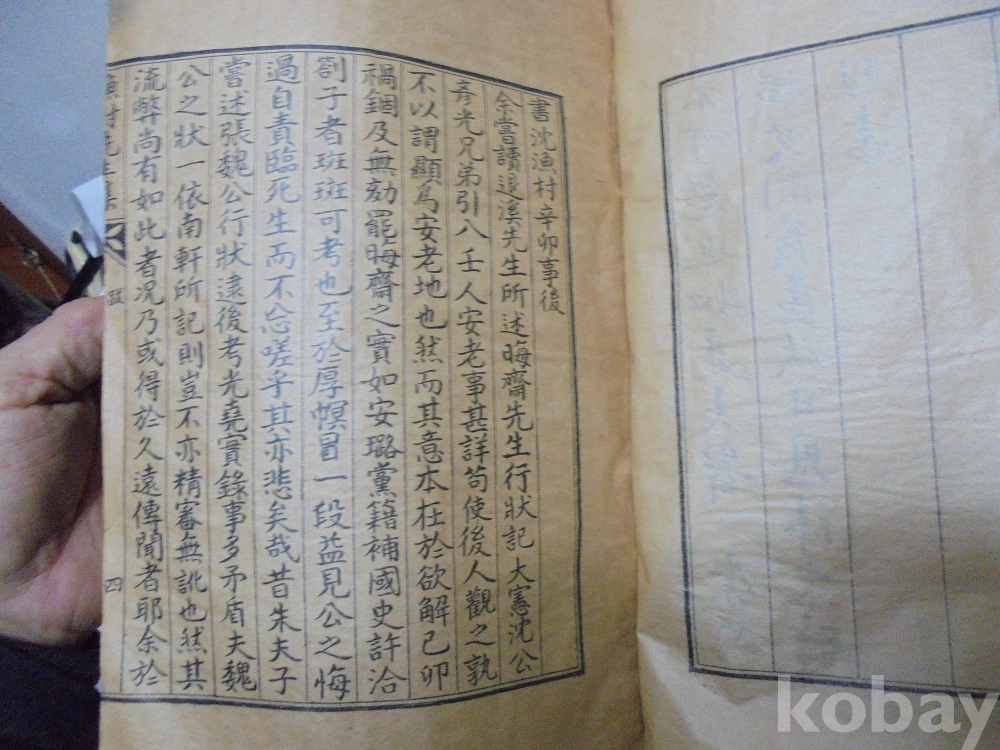 書沈漁村辛卯事後
余嘗讀退溪先生所述晦齋先生行狀記大憲沈公
彥光兄弟引八壬人安老事甚詳苟使後人觀之孰
不以謂顯爲安老地也然而其意本在於欲解己卯
禍錮及無劾罷晦齋之實如安璐黨籍補國史許洽
劄子者班班可考也至於厚幎冒一段益見公之悔
過自責臨死生而不忘嗟乎其亦悲矣哉昔朱夫子
嘗述張魏公行狀逮後考光堯實錄事多矛盾夫魏
公之狀一依南軒所記則豈不亦精審無訛也然其
流弊尚有如此者況乃或得於久遠傳聞者耶余於
漁村先生集 跋 四
kobay